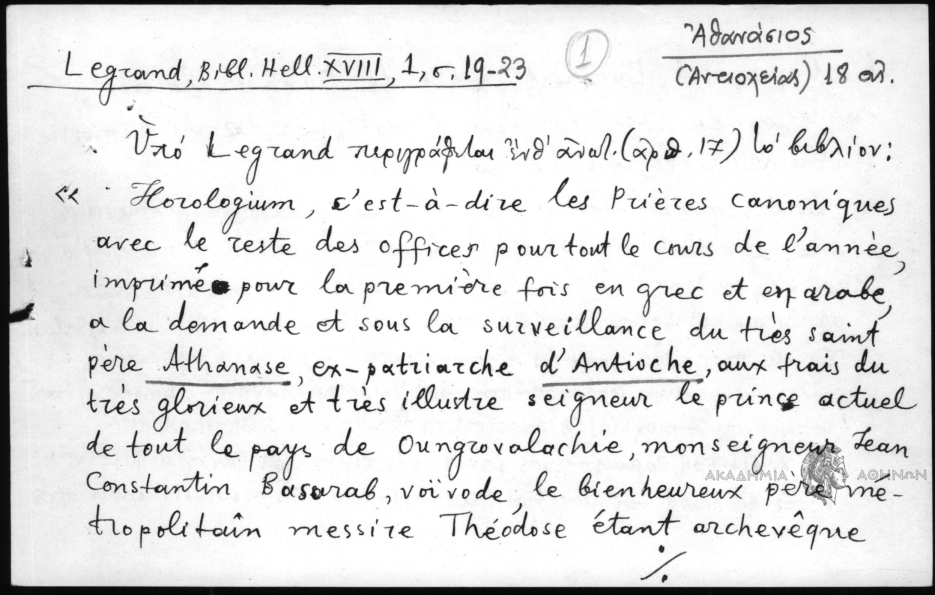 Ἀθανάσιος
Legrand, Bibl. Hell. XVIII, 1, σ. 19-23 (1) (Ἀντιοχείας) 18 αἰ.
Ὑπό Legrand περιγράφεται ἐνθ' ἀνωτ. (ἀριθ. 17) τό βιβλίον:
« Horologium, c'est-à-dire les Prières canoniques
avec le reste des offices pour tout le cours de l'année,
imprimé pour la première fois en grec et en arabe,
a la demande et sous la surveillance du très saint
père Athanase, ex-patriarche d'Antioche, aux frais du
très glorieux et très illustre seigneur le prince actuel
de tout le pays de Oungrovalachie, monseigneur Jean
Constantin Basarab, voïvode, le bienheureux père mé-
tropolitain messire Théodose étant archevêque
./.
ΑΚΑΔΗΜΙΑ ΑΘΗΝΩΝ